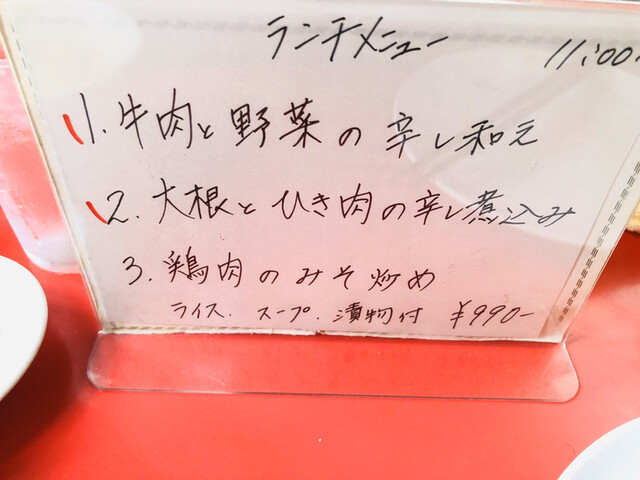 ランチメニュー 11:00~
1. 牛肉と野菜の辛し和え
2. 大根とひき肉の辛し煮込み
3. 鶏肉のみそ炒め
ライス. スープ. 漬物付 ¥990-